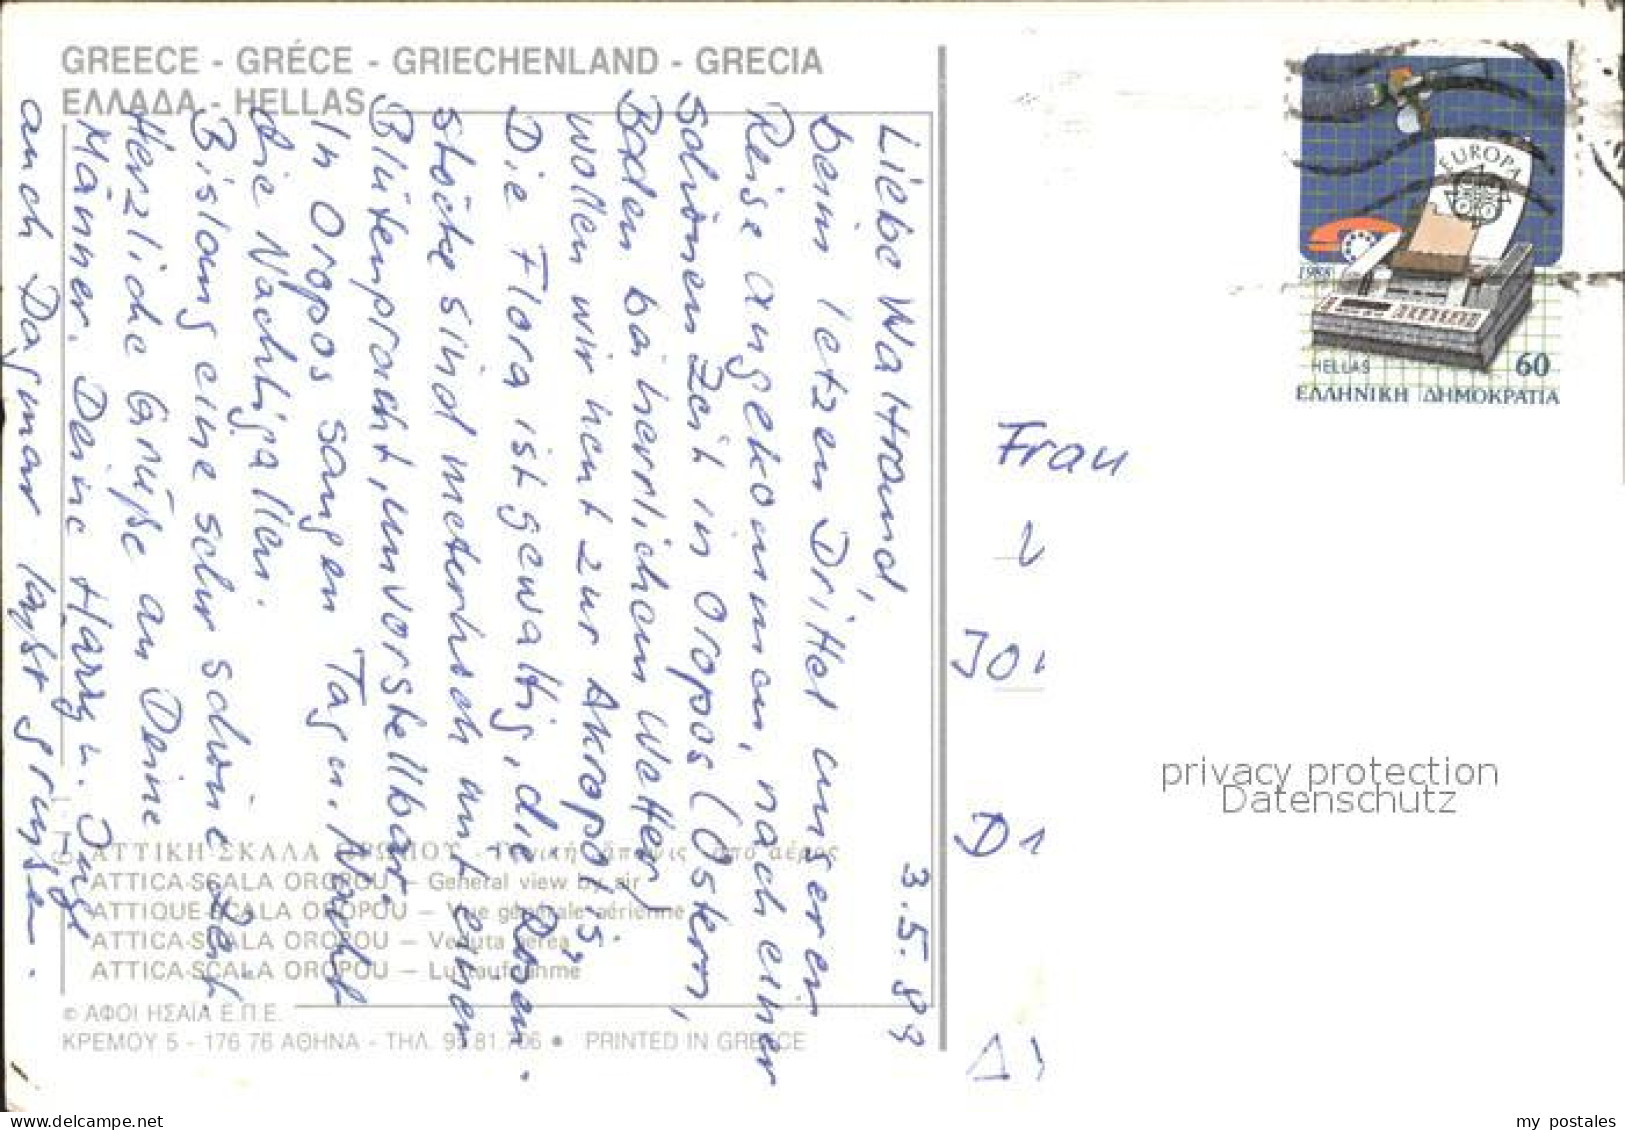 GREECE - GRÉCE - GRIECHENLAND - GRECIA
ΕΛΛΑΔΑ - HELLAS
3.5.89
Liebe Waltraud,
beim letzen Drittel unserer
Reise angekommen, nach einer
schönen Zeit in Oropos (Ostern,
Baden bei herrlichem Wetter)
wollen wir heut zur Akropolis.
Die Flora ist gewaltig, die Rosen-
stöcke sind meterhoch mit einer
Blütenpracht, unvorstellbar.
In Oropos sangen Tag u. Nacht
die Nachtigallen.
Bislang eine sehr schöne Zeit
Herzliche Grüße an Deine
Männer. Deine Harry u. Inge
auch Dagmar läßt grüßen.
ΑΤΤΙΚΗ-ΣΚΑΛΑ ΩΡΩΠΟΥ - Γενική ἄποψις ἀπό ἀέρος
ATTICA-SCALA OROPOU — General view by air
ATTIQUE-SCALA OROPOU — Vue générale aérienne
ATTICA-SCALA OROPOU — Veduta aerea
ATTICA-SCALA OROPOU — Luftaufnahme
© ΑΦΟΙ ΗΣΑΪΑ Ε.Π.Ε.
ΚΡΕΜΟΥ 5 - 176 76 ΑΘΗΝΑ - ΤΗΛ. 95.81.706 • PRINTED IN GREECE
EUROPA
1988
HELLAS 60
ΕΛΛΗΝΙΚΗ ΔΗΜΟΚΡΑΤΙΑ
Frau
privacy protection
Datenschutz
delcampe.net
my_postales